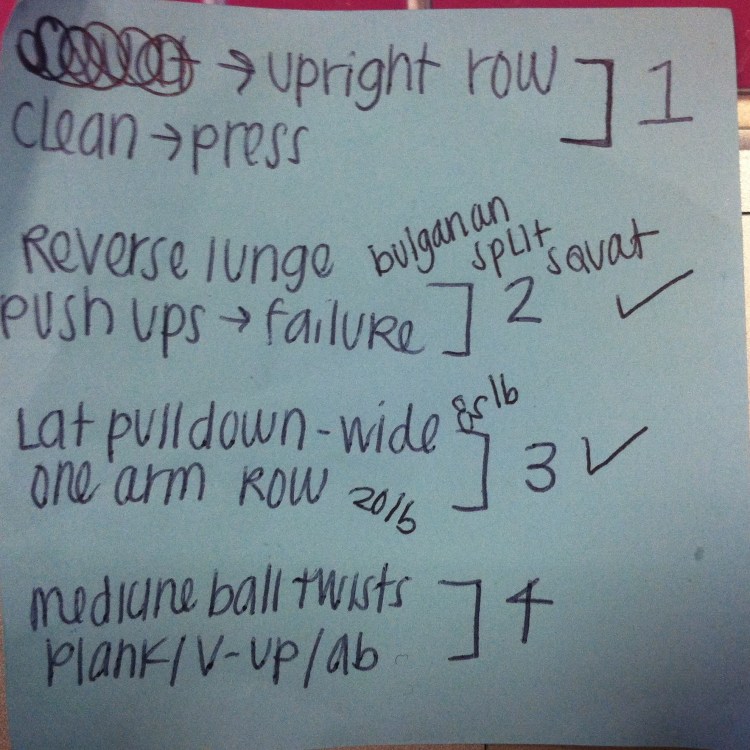 → upright row ] 1
clean → press
Reverse lunge bulganan split squat
push ups → failure ] 2 ✓
Lat pulldown-wide 85lb
one arm row 20lb ] 3 ✓
medicine ball twists ] 4
plank/v-up/ab